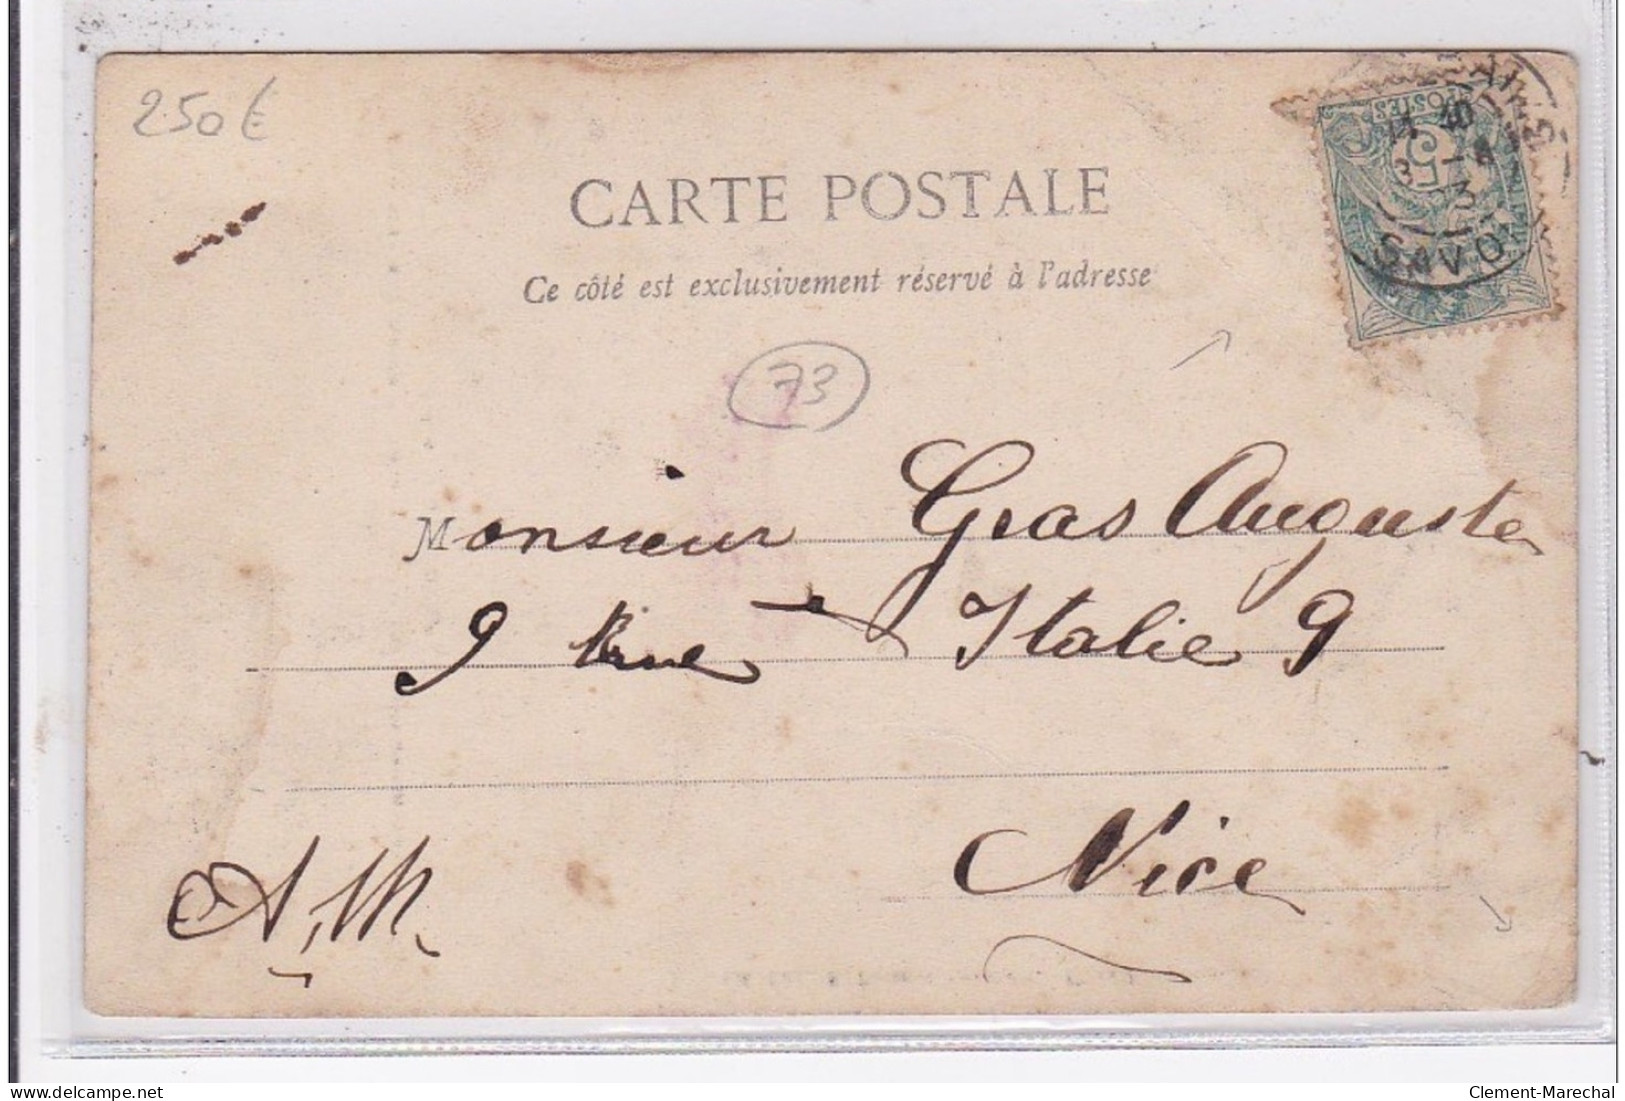 250€
CARTE POSTALE
Ce côté est exclusivement réservé à l'adresse
POSTES
5
SAVOI
73
Monsieur Gras Auguste
9 Rue Italie 9
Nice
A. M.
Clement-Marechal